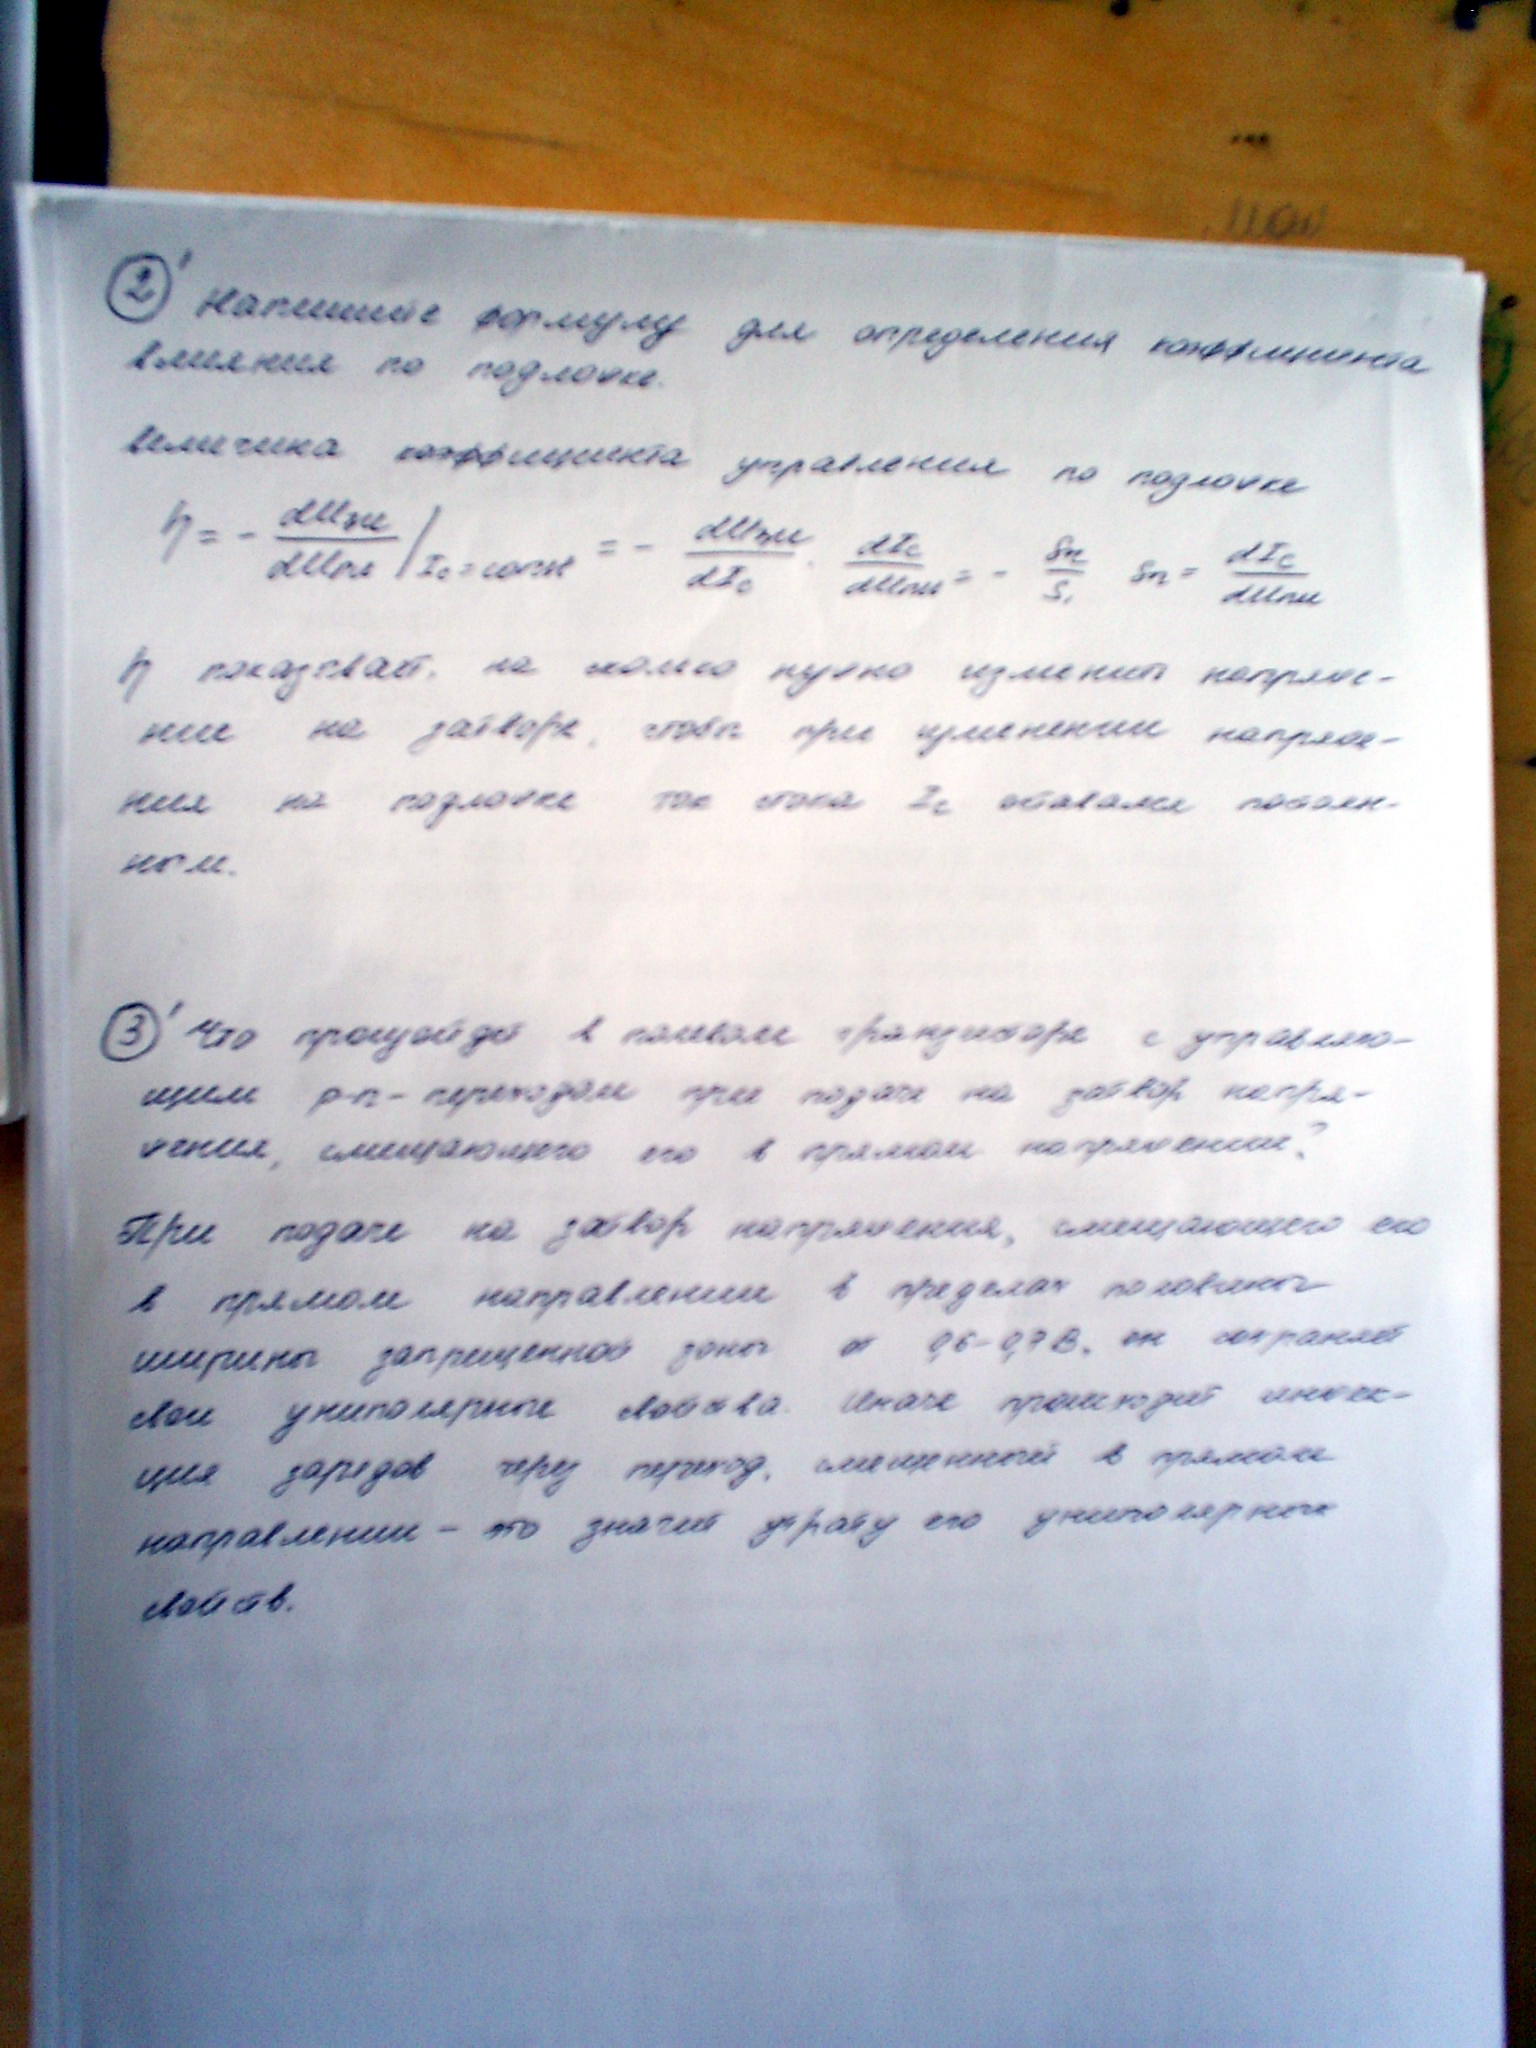 2' Напишите формулу для определения коэффициента
влияния по подложке.
Величина коэффициента управления по подложке
η = - dUзи/dUпи |Ic = const = - dUзи/dIc · dIc/dUпи = - Sп/S, Sп = dIc/dUпи
η показывает, на сколько нужно изменить напряже-
ние на затворе, чтобы при изменении напряже-
ния на подложке ток стока Ic оставался постоян-
ным.
3' Что произойдет в полевом транзисторе с управляю-
щим p-n-переходом при подаче на затвор напря-
жения, смещающего его в прямом напряжении?
При подаче на затвор напряжения, смещающего его
в прямом направлении в пределах половины
ширины запрещенной зоны 0,6-0,7 В, он сохраняет
свои униполярные свойства. Иначе происходит инжек-
ция зарядов через переход, смещенный в прямом
направлении - это значит утрату его униполярных
свойств.